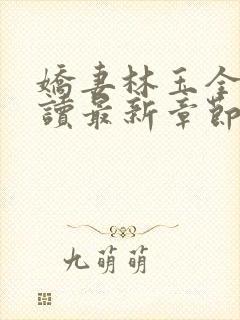 嬌妻林玉全
讀最新章節
九萌萌